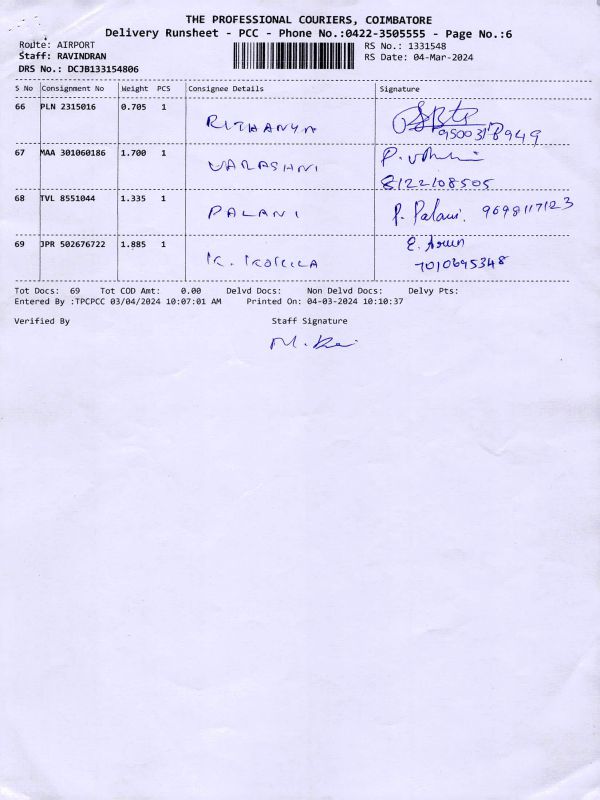 THE PROFESSIONAL COURIERS, COIMBATORE
Delivery Runsheet - PCC - Phone No.:0422-3505555 - Page No.:6
Route: AIRPORT
Staff: RAVINDRAN
DRS No.: DCJB133154806
RS No.: 1331548
RS Date: 04-Mar-2024
S No Consignment No Weight PCS Consignee Details Signature
66 PLN 2315016 0.705 1 RITHANYA
67 MAA 301060186 1.700 1 VARASHNI P.
8122108505
68 TVL 8551044 1.335 1 PALANI P. Palani. 9698117123
69 JPR 502676722 1.885 1 K. KOKILA E. Arun
7010695348
Tot Docs: 69 Tot COD Amt: 0.00 Delvd Docs: Non Delvd Docs: Delvy Pts:
Entered By :TPCPCC 03/04/2024 10:07:01 AM Printed On: 04-03-2024 10:10:37
Verified By Staff Signature